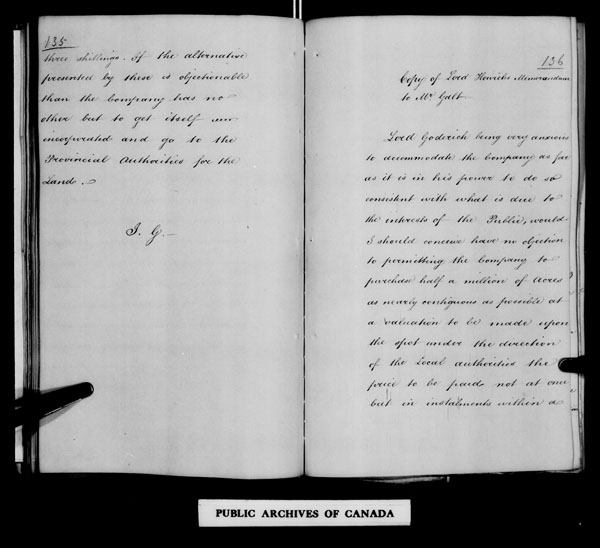 135
three shillings. If the alternative
presented by these is objectionable
than the Company has no
other but to get itself un
incorporated and go to the
Provincial Authorities for the
Land.
J. G.
136
Copy of Lord Howicks Memorandum
to Mr Galt
Lord Goderich being very anxious
to accommodate the Company as far
as it is in his power to do so
consistent with what is due to
the interests of the Public, would
I should conceive have no objection
to permitting the Company to
purchase half a million of Acres
as nearly contiguous as possible at
a valuation to be made upon
the spot under the direction
of the Local authorities the
price to be paid not at once
but in instalments within a
PUBLIC ARCHIVES OF CANADA